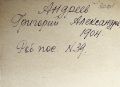 Андреев
Григорий Александр
1904
Раб пос. N 39